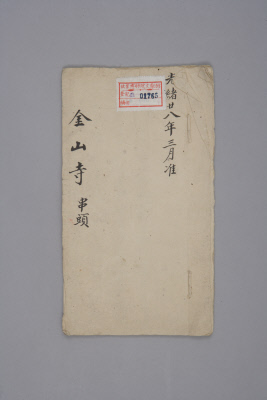 光緒廿八年三月准
金山寺 串頭
01765